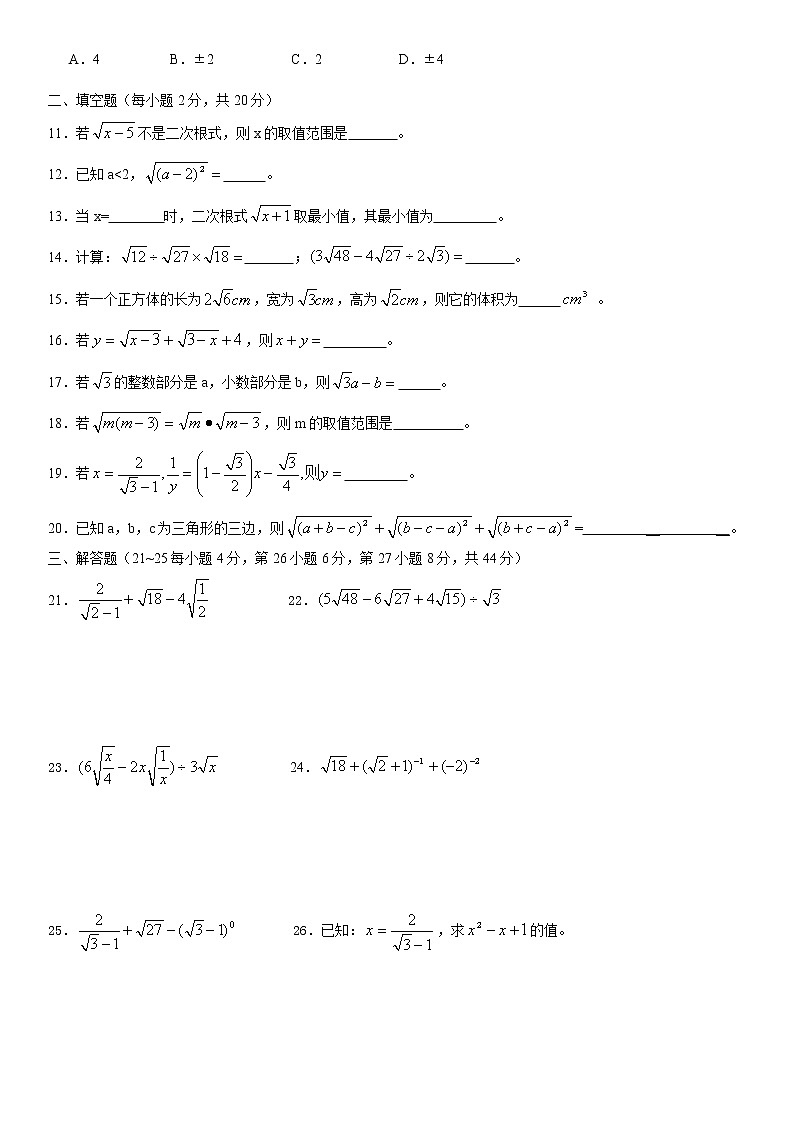 A．4 B．±2 C．2 D．±4
二、填空题（每小题 2 分，共 20 分）
11．若 √(x−5) 不是二次根式，则 x 的取值范围是_______。
12．已知 a<2，√((a−2)²) = ______。
13．当 x=________时，二次根式 √(x+1) 取最小值，其最小值为_________。
14．计算：√12 ÷ √27 × √18 = _______；(3√48 − 4√27 ÷ 2√3) = _______。
15．若一个正方体的长为 2√6cm，宽为 √3cm，高为 √2cm，则它的体积为______cm³ 。
16．若 y = √(x−3) + √(3−x) + 4，则 x + y = _________。
17．若 √3 的整数部分是 a，小数部分是 b，则 √3a − b = ______。
18．若 √(m(m−3)) = √m • √(m−3)，则 m 的取值范围是__________。
19．若 x = 2/(√3−1), 1/y = (1 − √3/2)x − √3/4, 则y = _________。
20．已知 a，b，c 为三角形的三边，则 √((a+b−c)²) + √((b−c−a)²) + √((b+c−a)²) = ____________________。
三、解答题（21~25 每小题 4 分，第 26 小题 6 分，第 27 小题 8 分，共 44 分）
21．2/(√2−1) + √18 − 4√(1/2) 22．(5√48 − 6√27 + 4√15) ÷ √3
23．(6√(x/4) − 2x√(1/x)) ÷ 3√x 24．√18 + (√2+1)⁻¹ + (−2)⁻²
25．2/(√3−1) + √27 − (√3−1)⁰ 26．已知：x = 2/(√3−1)，求 x² − x + 1 的值。